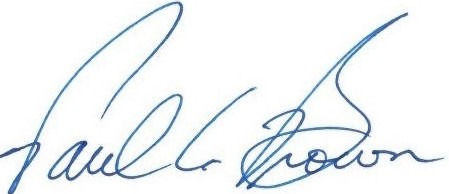 Paul L Brown